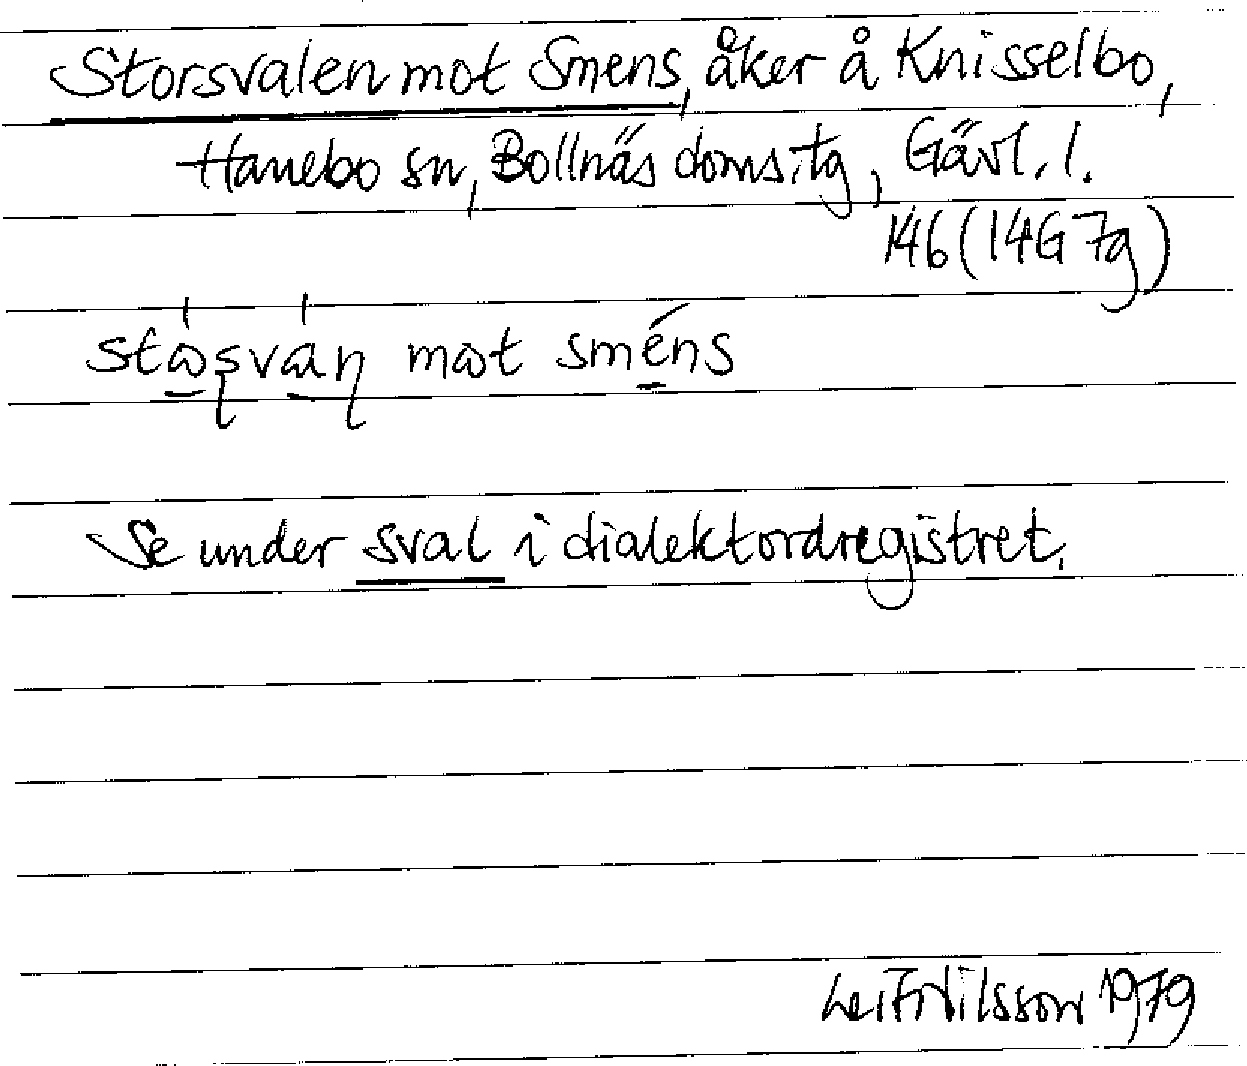 Storsvalen mot Smens, åker å Knisselbo,
Hanebo sn, Bollnäs doms.tg, Gävl. l.
146 (14G 7g)
mot sméns
Se under sval i dialektordregistret.
Leif Nilsson 1979